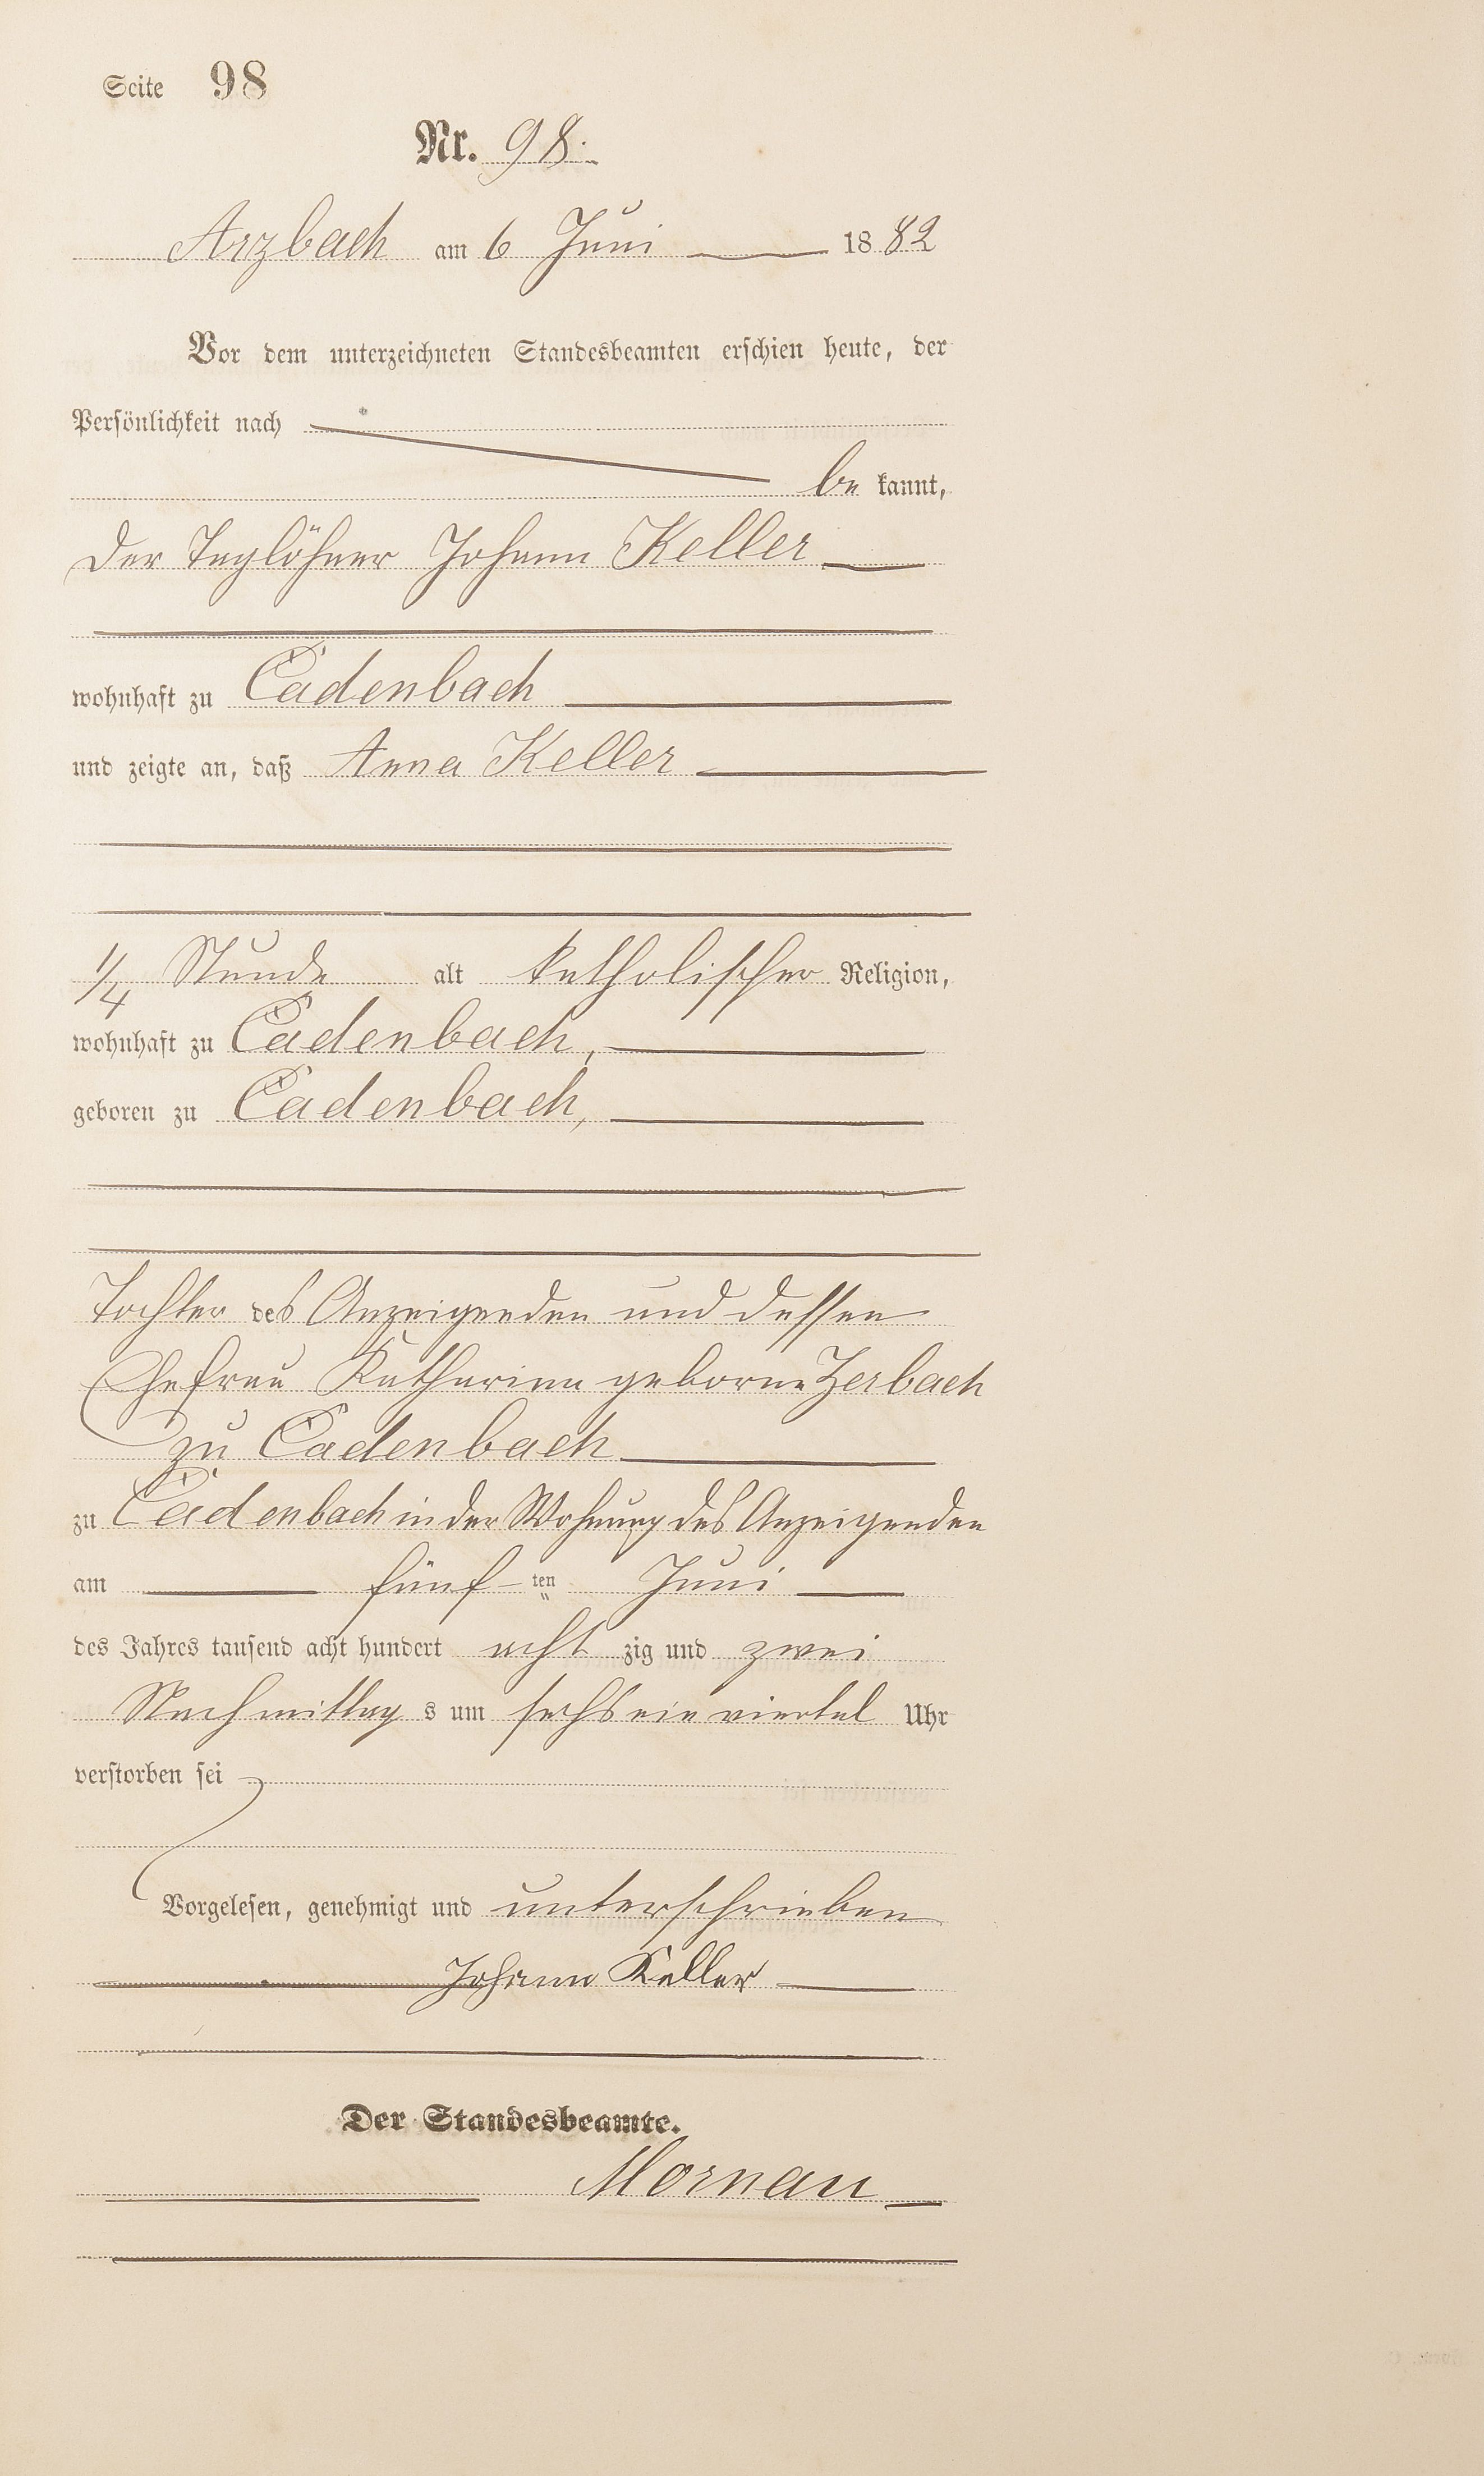 Seite 98
Nr. 98.
Arzbach am 6 Juni 1882
Vor dem unterzeichneten Standesbeamten erschien heute, der
Persönlichkeit nach
be kannt,
der Taglöhner Johann Keller
wohnhaft zu Cadenbach
und zeigte an, daß Anna Keller
1/4 Stunde alt katholischer Religion,
wohnhaft zu Cadenbach,
geboren zu Cadenbach,
Tochter des Anzeigenden und dessen
Ehefrau Katharina geborne Zerbach
zu Cadenbach
zu Cadenbach in der Wohnung des Anzeigenden
am fünf- ten Juni
des Jahres tausend acht hundert acht zig und zwei
Nachmittag s um sechs ein viertel Uhr
verstorben sei
Vorgelesen, genehmigt und unterschrieben
Johann Keller
Der Standesbeamte.
Mornau